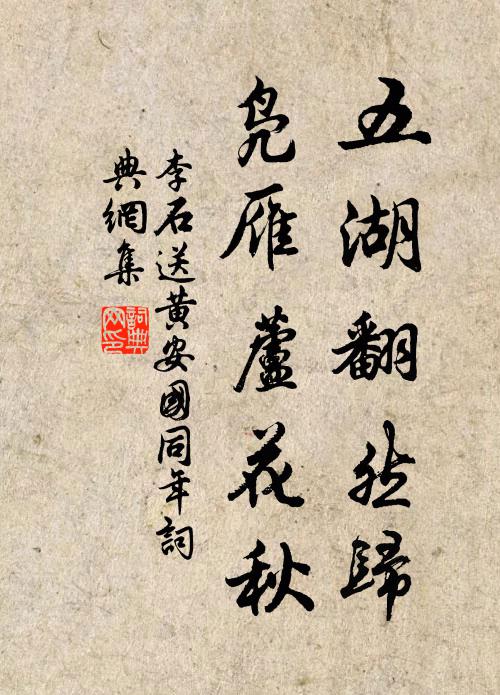 五湖翻然歸
凫雁蘆花秋
李石送黄安國同年詞
典網集
詞典
网印